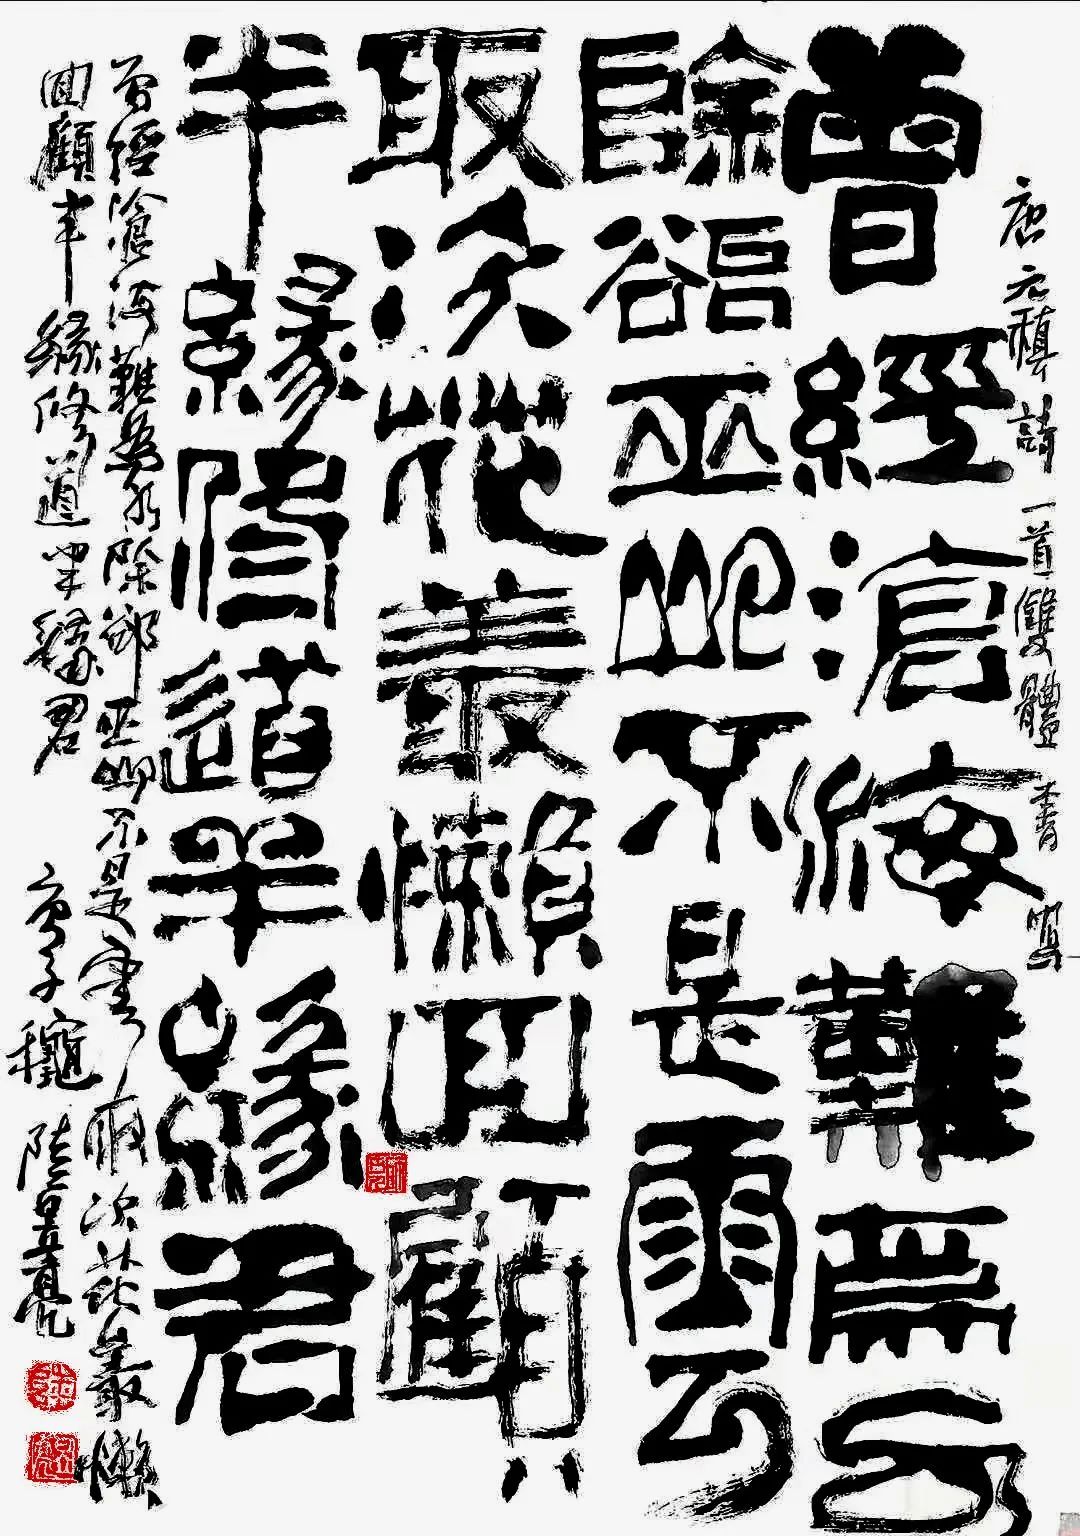 唐元稹詩一首雙體書寫
曾經滄海難為水
除卻巫山不是雲
取次花叢懶回顧
半緣修道半緣君
曾經滄海難為水除卻巫山不是雲取次花叢懶
回顧半緣修道半緣君 庚子龝 陸亮